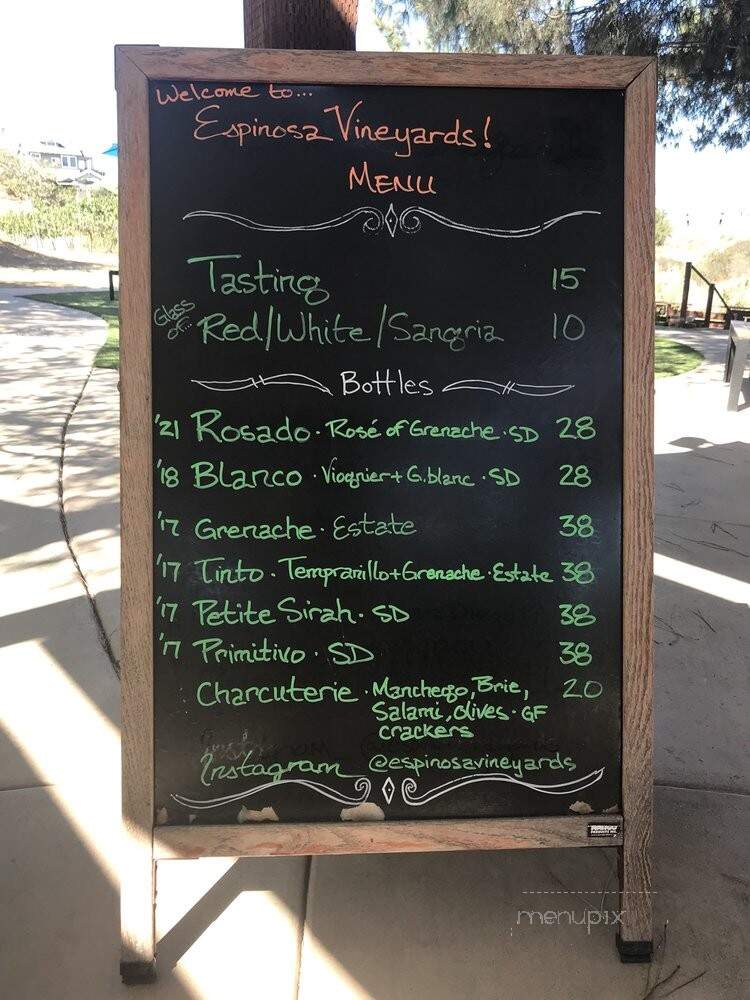 Welcome to...
Espinosa Vineyards!
MENU
Tasting 15
Glass of... Red/White/Sangria 10
Bottles
'21 Rosado · Rosé of Grenache · SD 28
'18 Blanco · Viognier + G.blanc · SD 28
'17 Grenache · Estate 38
'17 Tinto · Tempranillo + Grenache · Estate 38
'17 Petite Sirah · SD 38
'17 Primitivo · SD 38
Charcuterie · Manchego, Brie, 20
Salami, Olives · GF
crackers
Instagram @espinosavineyards
menupix